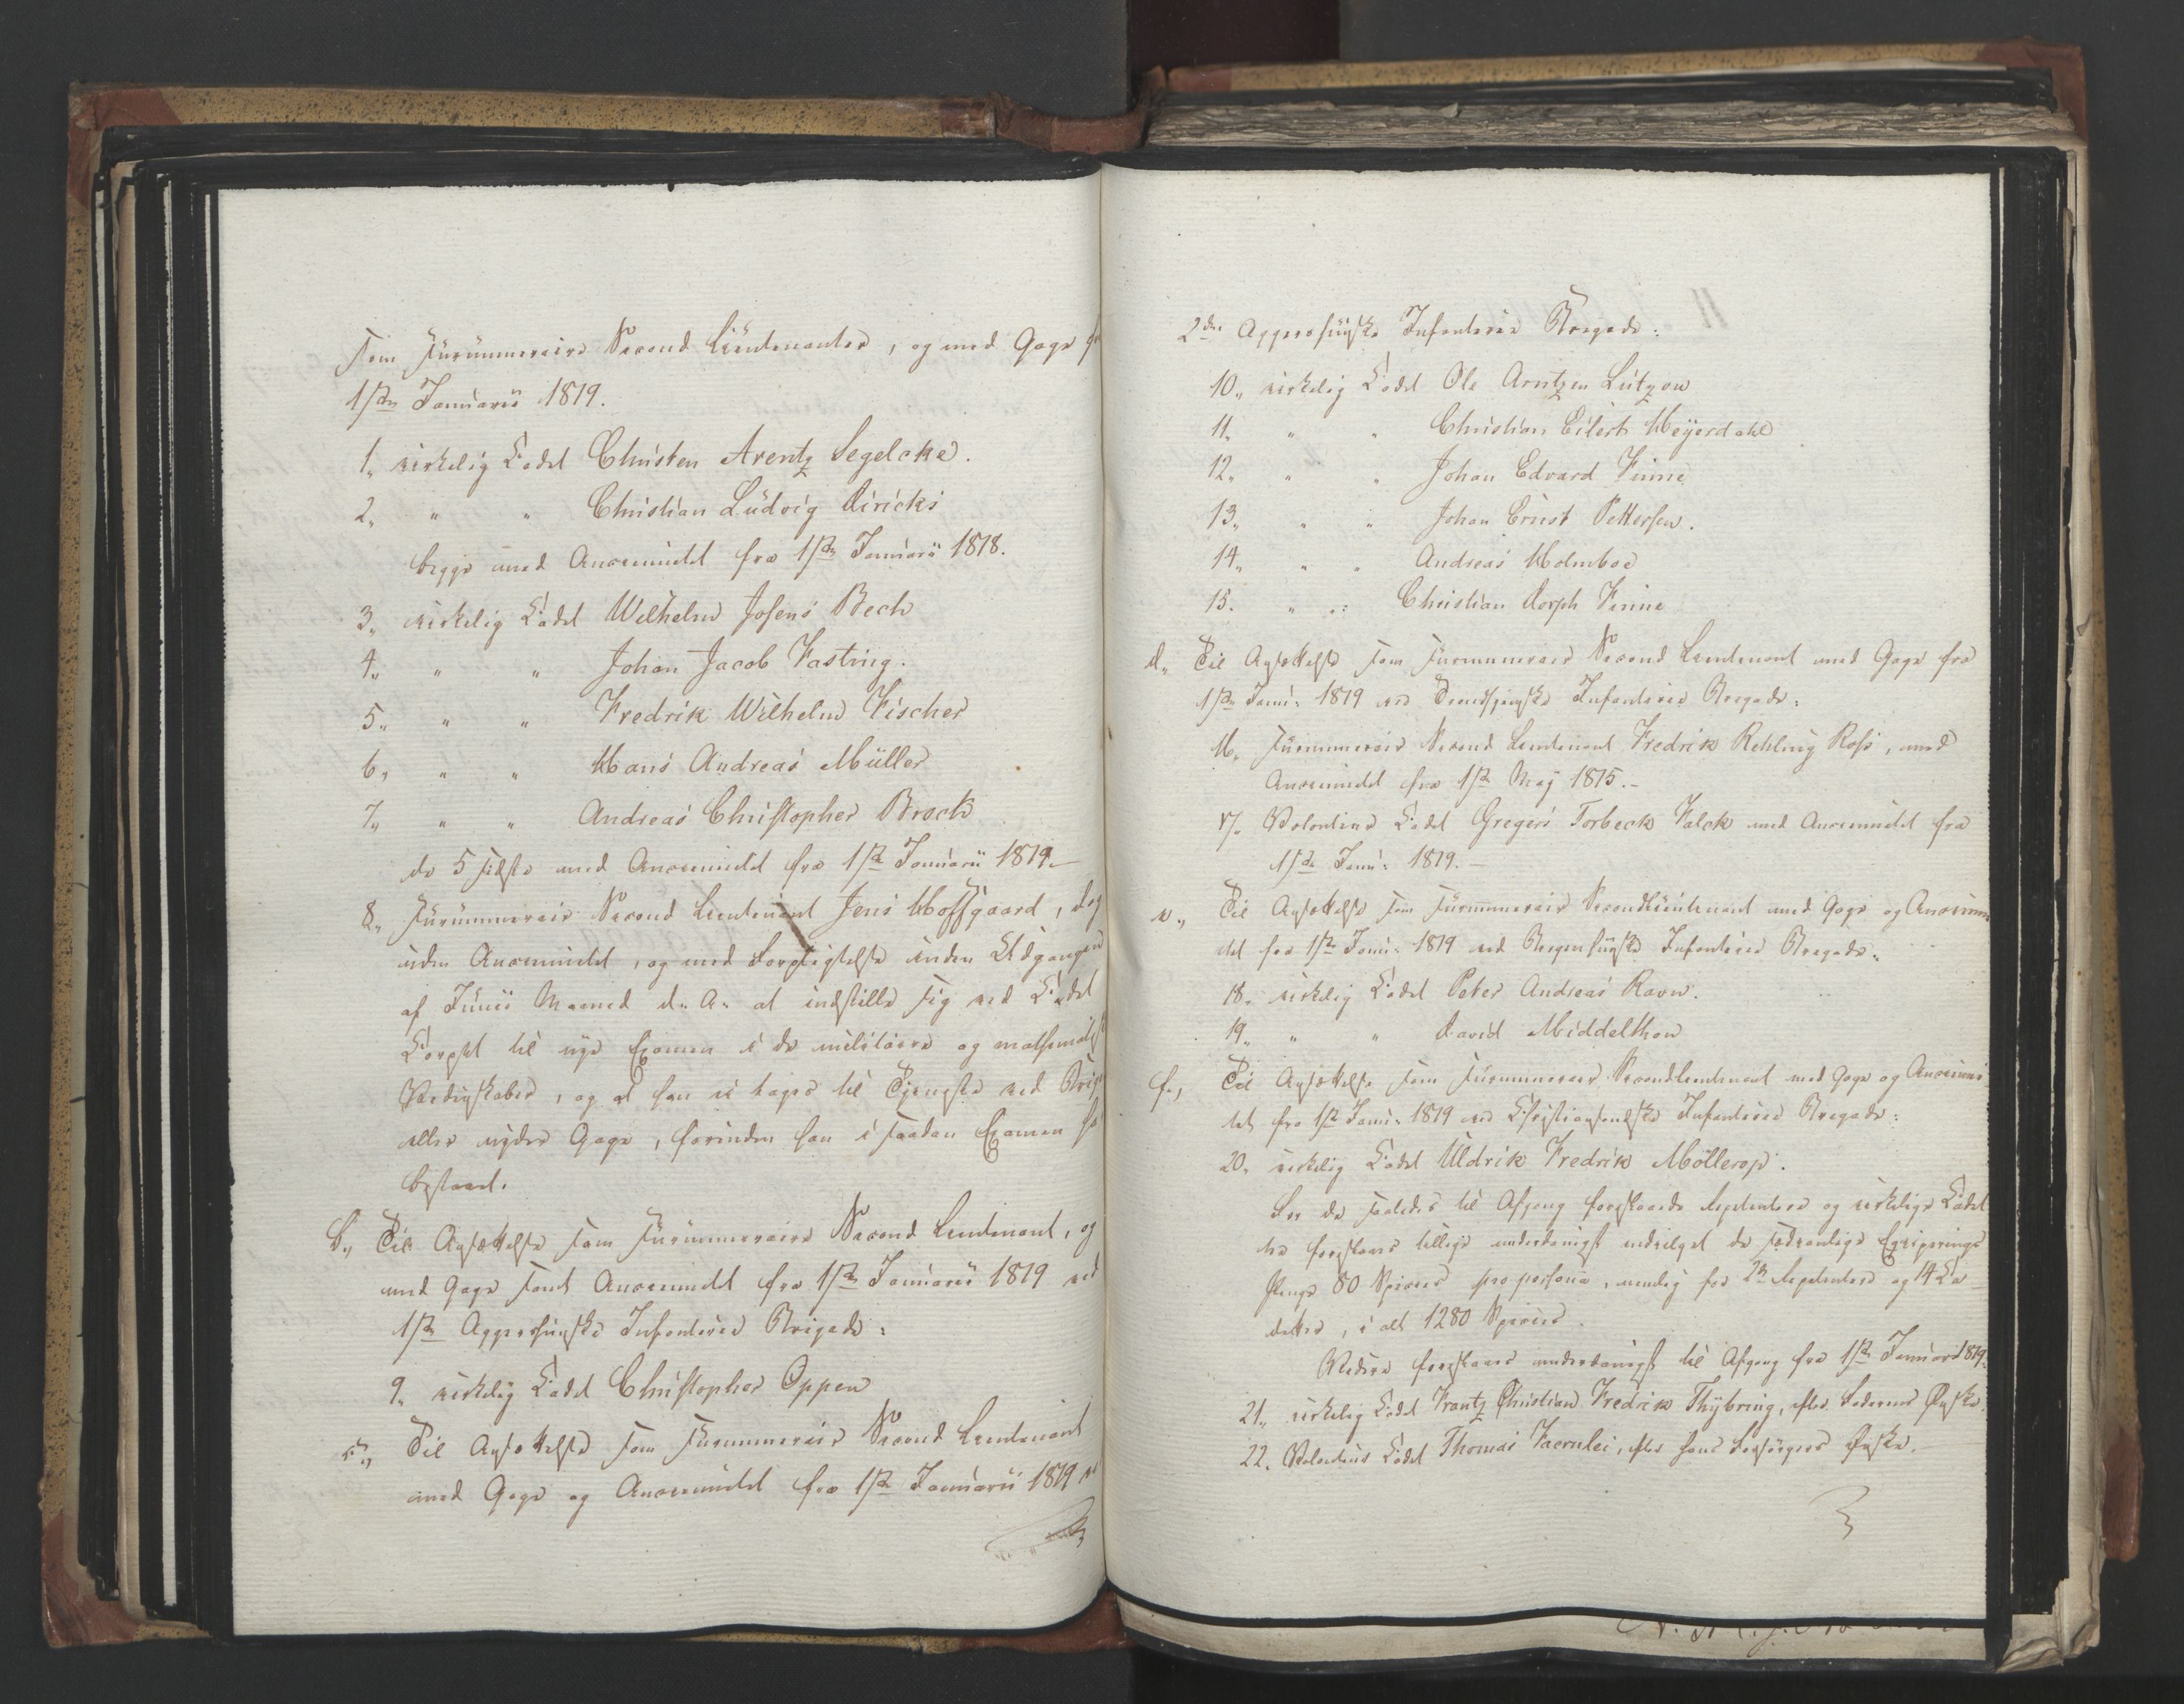 som Surummeraire Second Lieutenanter, og med Gage fr
1ste Januarii 1819.
1„ virkelig Cadet Christen Arentz Segelcke.
2„ " " Christian Ludvig Diricks
begge med Anciennitet fra 1ste Januarii 1818.
3„ virkelig Cadet Wilhelm Josens Bech
4„ " " Johan Jacob Fasting.
5„ " " Fredrik Wilhelm Fischer
6„ " " Hans Andreas Müller
7„ " " Andreas Christopher Brock
de 5 sidste med Anciennitet fra 1ste Januarii 1819.—
8„ Surnummerair Second Lieutenant Jens Hoffgaard, dog
uden Anciennitet, og med Forpligtelse inden Udgangen
af Junii Maaned d. A. at indstille sig ved Cadet
Corpset til nye Examen i de militaire og mathemati
Videnskaber, og at han ei tages til Tjeneste ved Brig
eller nyder Gage, forinden han i saadan Examen ha
bestaaet.
b„ Til Ansættelse som Surnummeraire Second Lieutenant, og
med Gage samt Anciennitet fra 1ste Januarii 1819 ved
1ste Aggershuusske Infanterie Brigade:
9„ virkelig Cadet Christopher Oppen
c„ Til Ansættelse som Surnummerair Second Lieutenant
med Gage og Anciennitet fra 1ste Januarii 1819 v
2den Aggershuusske Infanterie Bregade:
10„ virkelig Cadet Ole Arntzen Lützow
11„ " " Christian Eilert Meyerdahl
12„ " " Johan Edvard Finne
13„ " " Johan Ernst Pettersen.
14„ " " Andreas Holmboe
15. " " Christian Dorph Finne
d„ Til Ansættelse som Surnummerair Second Lieutenant med Gage fra
1ste Janu: 1819 ved Trondhjemske Infanterie Bregade:
16„ Surnummerair Second Lieutenant Fredrik Rehling Ross, med
Anciennitet fra 1ste Maj 1815.-
17„ Volontair Cadet Gregers Torbeck Falck med Anciennitet fra
1ste Janu: 1819.—
e„ Til Ansættelse som Surnummerair Secondlieutenant med Gage og Ancienni
tet fra 1ste Janu: 1819 ved Bergenhuusske Infanterie Bregade:
18. virkelig Cadet Peter Andreas Ravn.
19„ " " David Middelthon
f„ Til Ansættelse som Surnummerair Secondlieutenant med Gage og Ancienni
tet fra 1ste Janu: 1819 ved Christiansandske Infanterie Bregade:
20„ virkelig Cadet Uldrik Fredrik Møllerop.
For de saaledes til Afgang foreslaaede Deputerere og virkelige Cadet
ter foreslaaes tillige underdanigst indvilget de sædvanlige Eqviperings
Penge 80 Species pro persona, nemlig for 2de og 14 Ca
detter, i alt 1280 Species.
Videre foreslaaes underdanigst til Afgang fra 1ste Januari 1819:
21„ virkelig Cadet Frantz Christian Fredrik Thybring, efter Faderens Ønske.
22. Volontair Cadet Thomas Vaernlei, efter hans Forsørgers Ønske.